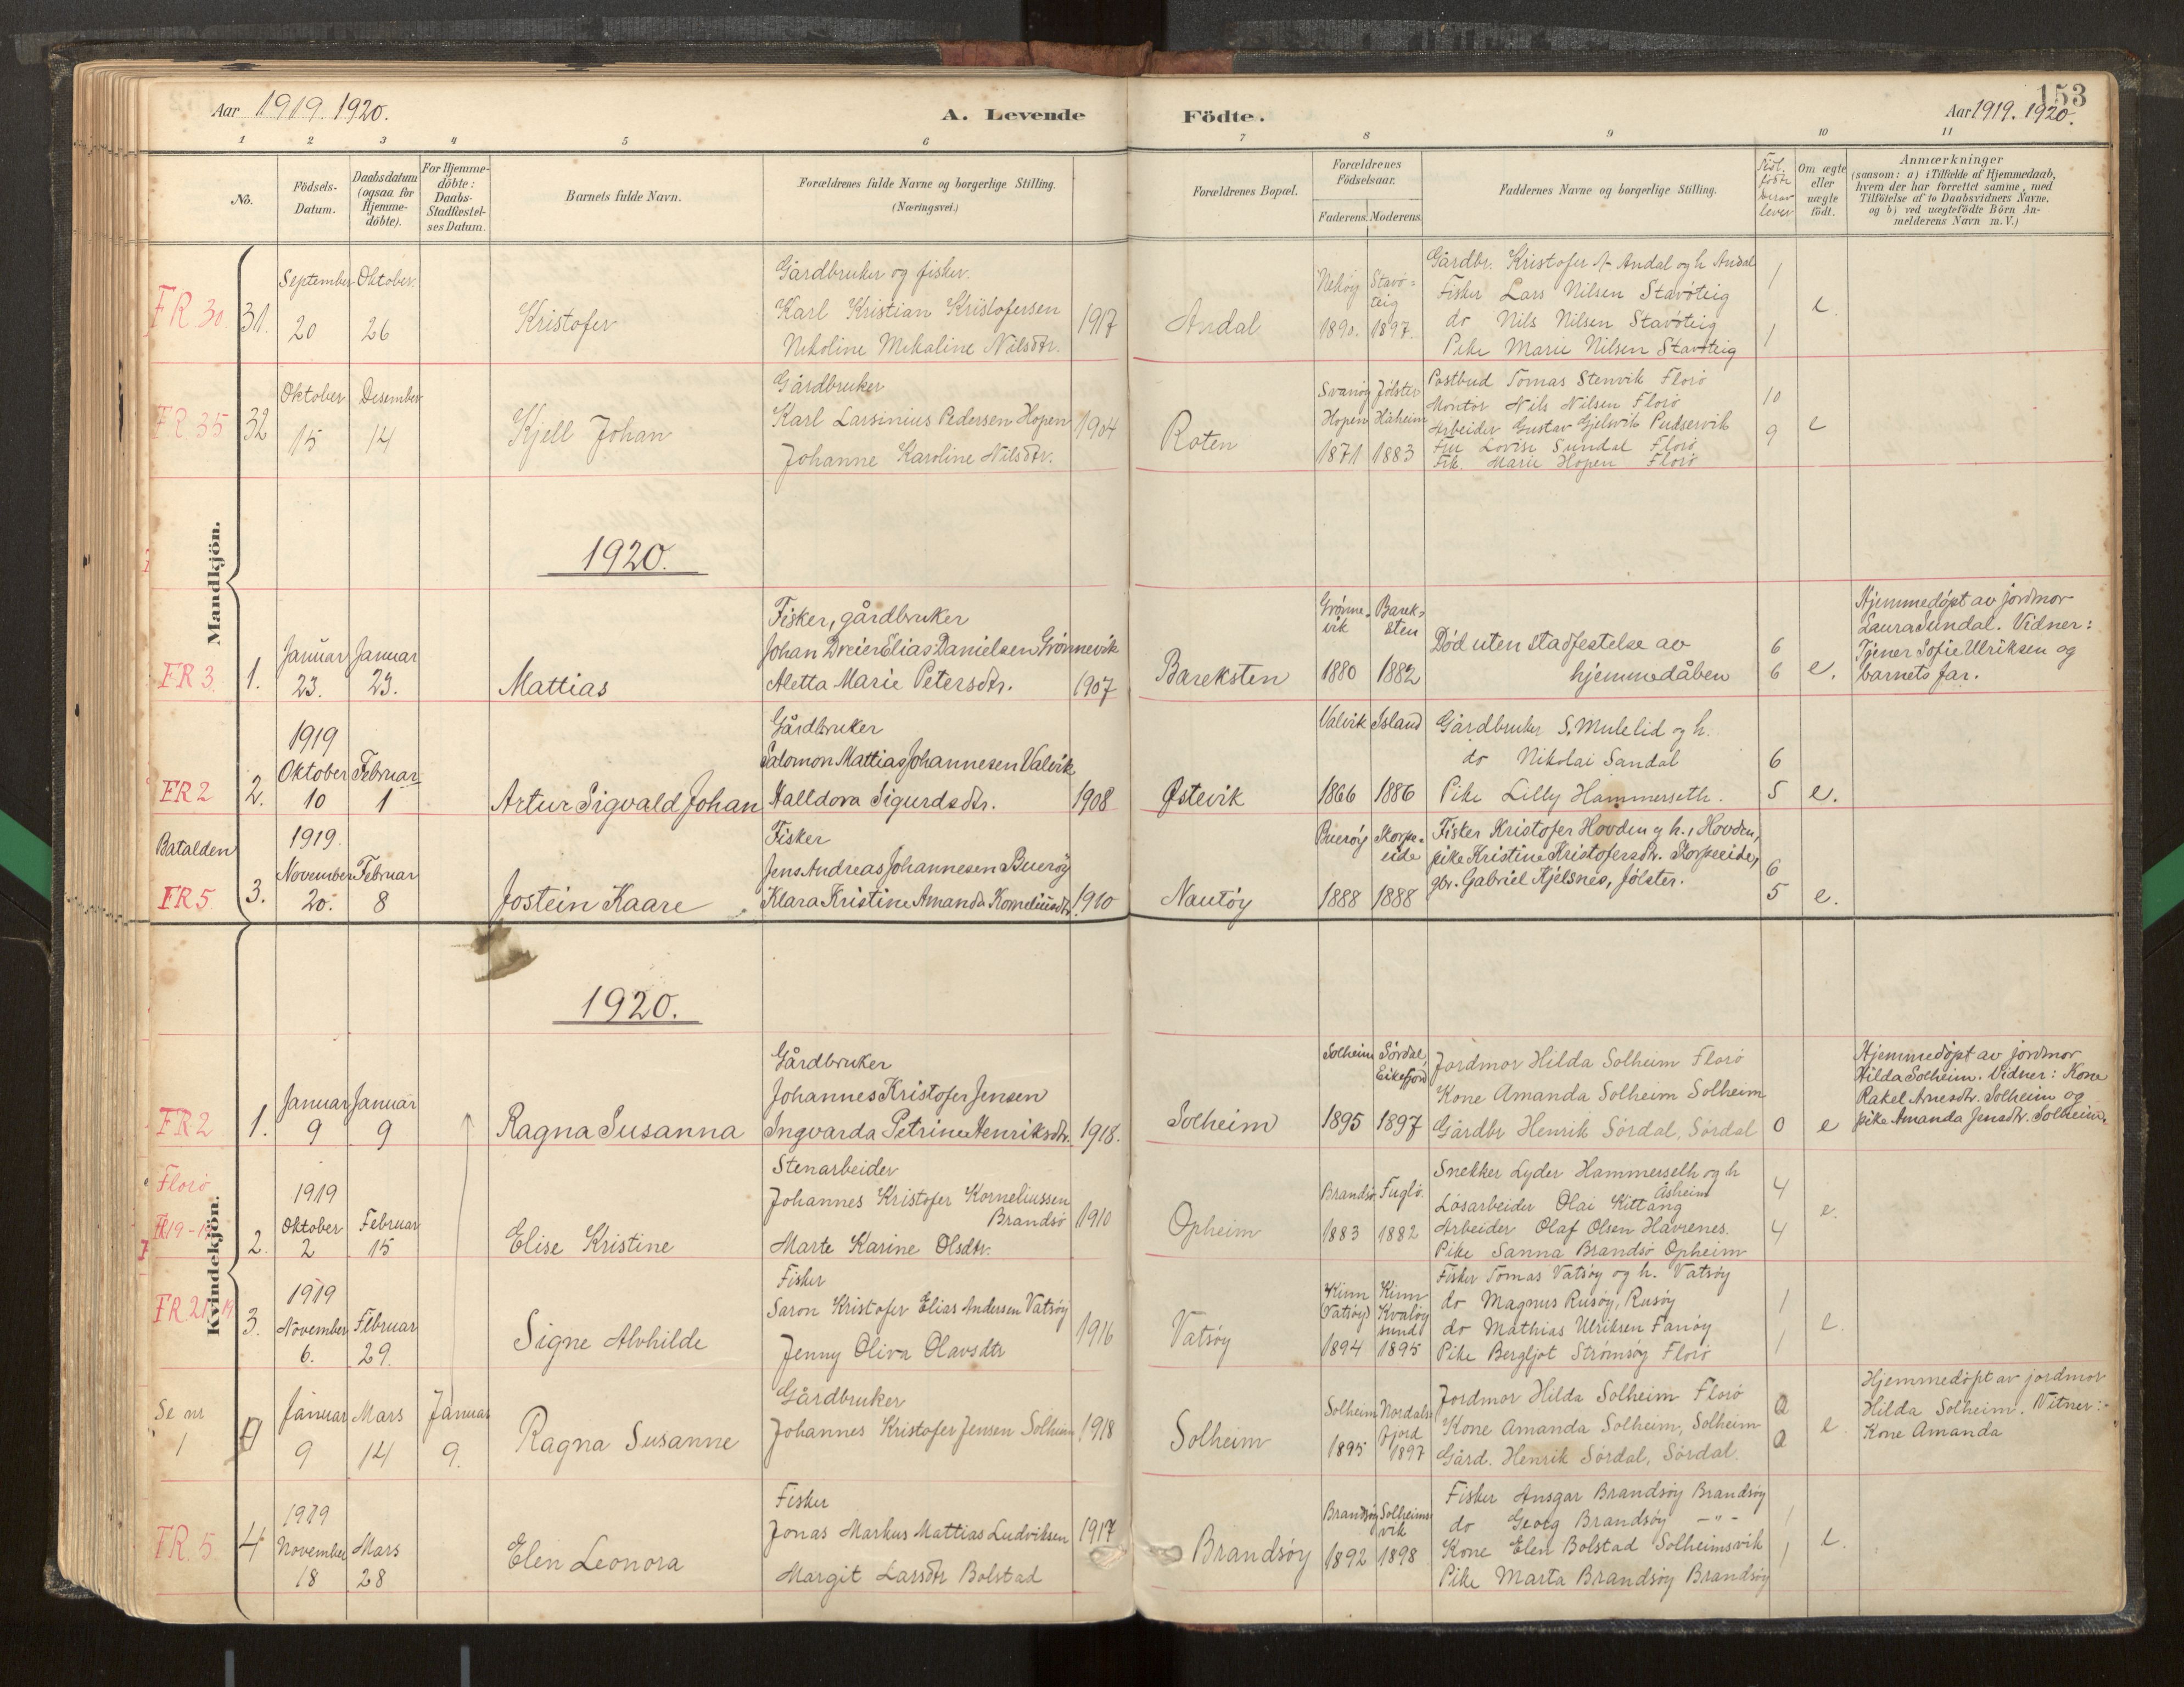 153
Aar 1919. 1920.
A. Levende
Födte.
Aar 1919. 1920.
1 2 3 4 5 6 7 8 9 10 11
No.
Födsels-
Datum.
Daabsdatum
(ogsaa for
Hjemme-
döbte).
For Hjemme-
döbte:
Daabs-
Stadfæstel-
ses Datum.
Barnets fulde Navn.
Forældrenes fulde Navne og borgerlige Stilling.
(Næringsvei.)
Forældrenes Bopæl.
Forældrenes
Födselsaar.
Faderens. Moderens.
Faddernes Navne og borgerlige Stilling.
Om ægte
eller
uægte
födt.
Anmærkninger
(saasom: a) i Tilfælde af Hjemmedaab,
hvem der har forrettet samme, med
Tilföielse af to Daabsvidners Navne,
og b) ved uægtefödte Börn An-
melderens Navn m. V.)
Mandkjön.
FR 30.
31.
September
20
Oktober.
26
Kristofer
Gårdbruker og fisker.
Karl Kristian Kristofersen
Nikoline Mikaline Nilsdtr.
1917
Andal
1890.
Stavö-
teig
1897.
Gårdbr. Kristofer A Andal og h Andal
Fisker Lars Nilsen Stavöteig
do Nils Nilsen Stavöteig
Pike Marie Nilsen Stavöteig
1
1
e.
FR. 35
32
Oktober
15
Desember
14
Kjell Johan
Gårdbruker
Karl Larsinius Pedersen Hopen
Johanne Karoline Nilsdtr.
1904
Roten
Svanöy
Hopen
1871
Jölster
Håheim
1883
Postbud Tomas Stenvik Florö
Montör Nils Nilsen Florö
Arbeider Gustav Gjelsvik Pudservik
Fru Lovise Sundal Florö
Frk. Marie Hopen Florö
10
9
e
1920.
FR 3.
1.
Januar
23.
Januar
23.
Mattias
Fisker, gårdbruker
Johan Dreier Elias Danielsen Grönnevik
Aletta Marie Petersdtr.
1907
Bareksten
Grönne-
vik
1880
Barek-
sten
1882
Död uten stadfestelse av
hjemmedåben
6
6
e.
Hjemmedöpt av jordmor
Laura Sundal. Vidner:
Tjener Sofie Ulriksen og
barnets far.
FR 2
2.
1919
Oktober
10
Februar
1
Artur Sigvald Johan
Gårdbruker
Salomon Mattias Johannesen Valvik
Halldora Sigurdsdtr.
1908
Østevik
Valvik
1866
Island
1886
Gårdbruker S. Mulelid og h.
do Nikolai Sandal
Pike Lilly Hammerseth.
6
5
e.
Batalden
FR 5.
3.
1919.
November
20.
Februar
8
Jostein Kaare
Fisker
Jens Andreas Johannesen Bueröy
Klara Kristine Amanda Korneliusdtr.
1910
Nautöy
Bueröy
1888
Skorpe-
eide
1888
Fisker Kristofer Hovden og h., Hovden,
pike Kristine Kristofersdtr. Skorpeeide,
gbr. Gabriel Kjelsnes, Jölster.
6
5
e.
Kvindekjön.
1920.
FR 2
1.
Januar
9
Januar
9
Ragna Susanna
Gårdbruker
Johannes Kristofer Jensen
Ingvarda Petrine Henriksdtr.
1918.
Solheim
Solheim
1895
Sördal,
Eikefjord
1897
Jordmor Hilda Solheim Florö
Kone Amanda Solheim Solheim
Gårdbr Henrik Sördal, Sördal
0
e
Hjemmedöpt av jordmor
Hilda Solheim. Vidner: Kone
Rakel Arnesdtr. Solheim og
pike Amanda Jensdtr. Solheim.
Florö
2.
1919
Oktober
2
Februar
15
Elise Kristine
Stenarbeider
Johannes Kristofer Korneliussen
Brandsö
Marte Karine Olsdtr.
1910
Opheim
Brandsö
1883
Fuglö.
1882
Snekker Lyder Hammerseth og h
Åsheim
Lösarbeider Olai Kittang
Arbeider Olaf Olsen Havrenes.
Pike Sanna Brandsö Opheim
4
4
e.
FR. 21.
3.
1919
November
6.
Februar
29.
Signe Alvhilde
Fisker
Saron Kristofer Elias Andersen Vatsöy
Jenny Oliva Olavsdtr
1916
Vatsöy
Kinn
Vatsöy
1894
Kinn
Kvalöy
sund
1895
Fisker Tomas Vatsöy og h. Vatsöy
do Magnus Rusöy, Rusöy
do Mathias Ulriksen Fanöy
Pike Bergljot Strömsöy Florö
1
1
e.
Se nr
1
Januar
9
Mars
14
Januar
9.
Ragna Susanne
Gårdbruker
Johannes Kristofer Jensen Solheim
1918
Solheim
Solheim
1895
Nordals-
fjord
1897
Jordmor Hilda Solheim Florö
Kone Amanda Solheim, Solheim
Gård. Henrik Sördal, Sördal.
0
0
e.
Hjemmedöpt av jordmor
Hilda Solheim. Vitner:
Kone Amanda
FR. 5
4
1919
November
18
Mars
28
Elen Leonora
Fisker
Jonas Markus Mattias Ludviksen
Margit Larsdtr Bolstad
1917
Brandsöy
Brandsöy
1892
Solheims
vik
1898
Fisker Ansgar Brandsöy Brandsöy
do Georg Brandsöy - " -
Kone Elen Bolstad Solheimsvik
Pike Marta Brandsöy Brandsöy
1
1
e.